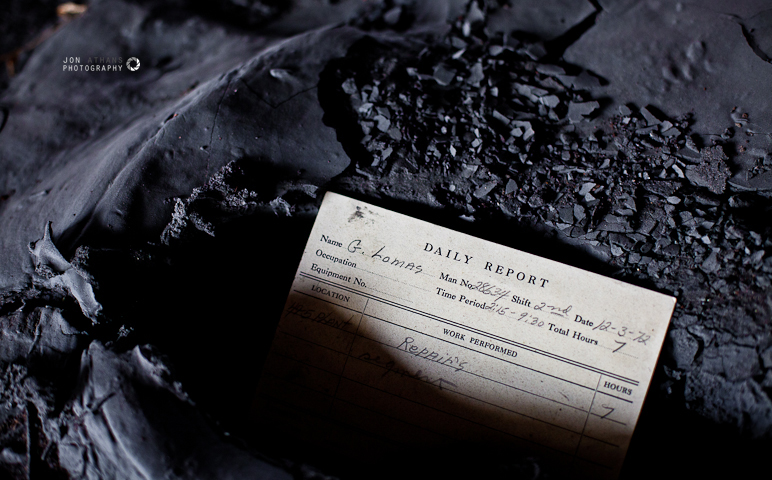 JON ATHANS
PHOTOGRAPHY
DAILY REPORT
Name G. Lomas Man No. 28634 Shift 2nd Date 12-3-72
Occupation Time Period 2:15 - 9:30 Total Hours 7
Equipment No.
LOCATION WORK PERFORMED HOURS
Repairs 7